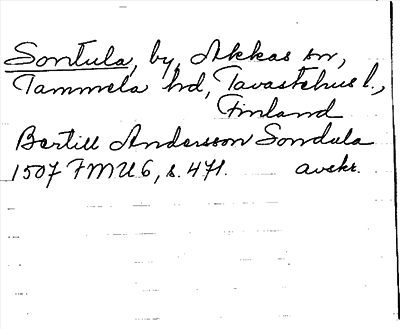 Sontula, by, Akkas sn,
Tammela hd, Tavastehus l.,
Finland
Bertill Andersson Sondula
1507 FMU 6, s. 471. avskr.